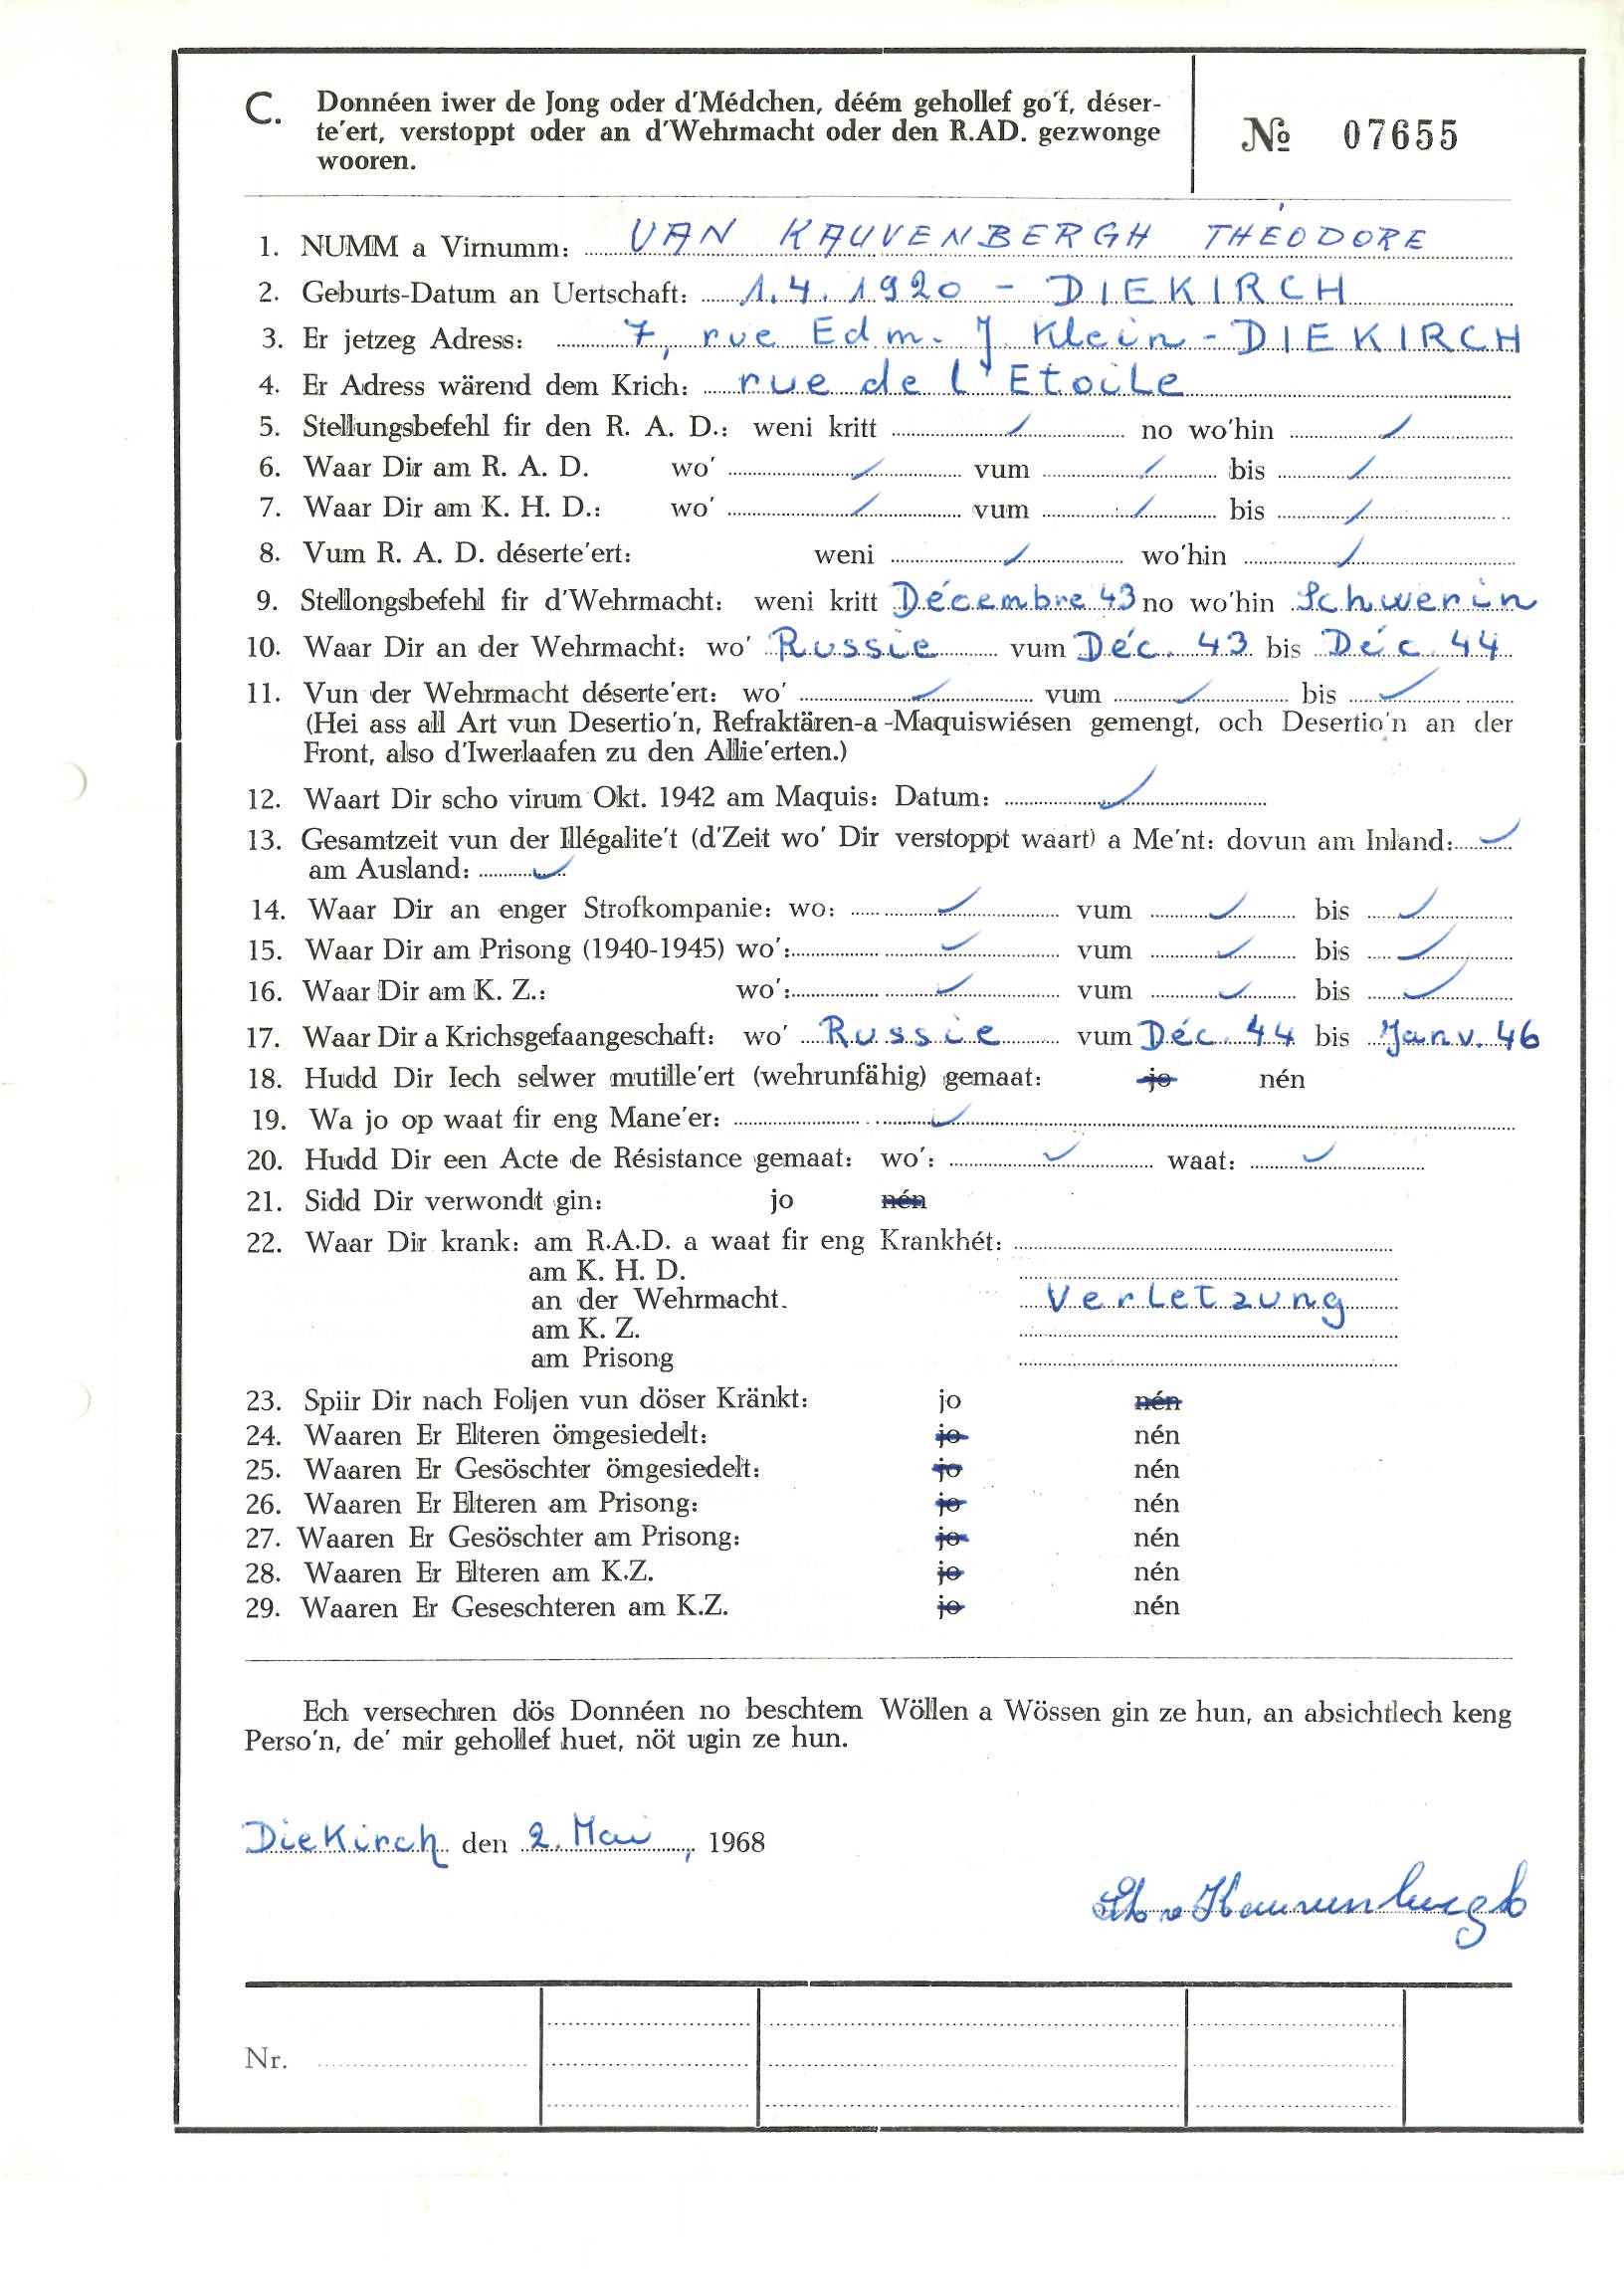 C. Donnéen iwer de Jong oder d'Médchen, déém gehollef go'f, déser-
te'ert, verstoppt oder an d'Wehrmacht oder den R.AD. gezwonge
wooren.
№ 07655
1. NUMM a Virnumm: VAN KAUVENBERGH THÉODORE
2. Geburts-Datum an Uertschaft: 1.4.1920 - DIEKIRCH
3. Er jetzeg Adress: 7, rue Edm. J. Klein - DIEKIRCH
4. Er Adress wärend dem Krich: rue de l'Etoile
5. Stellungsbefehl fir den R. A. D.: weni kritt / no wo'hin /
6. Waar Dir am R. A. D. wo' / vum / bis /
7. Waar Dir am K. H. D.: wo' / vum / bis /
8. Vum R. A. D. déserte'ert: weni / wo'hin /
9. Stellongsbefehl fir d'Wehrmacht: weni kritt Décembre 43 no wo'hin Schwerin
10. Waar Dir an der Wehrmacht: wo' Russie vum Déc. 43 bis Déc. 44
11. Vun der Wehrmacht déserte'ert: wo' / vum / bis /
(Hei ass all Art vun Desertio'n, Refraktären-a-Maquiswiésen gemengt, och Desertio'n an der
Front, also d'Iwerlaafen zu den Allie'erten.)
12. Waart Dir scho virum Okt. 1942 am Maquis: Datum: /
13. Gesamtzeit vun der Illégalite't (d'Zeit wo' Dir verstoppt waart) a Me'nt: dovun am Inland: /
am Ausland: /
14. Waar Dir an enger Strofkompanie: wo: / vum / bis /
15. Waar Dir am Prisong (1940-1945) wo': / vum / bis /
16. Waar Dir am K. Z.: wo': / vum / bis /
17. Waar Dir a Krichsgefaangeschaft: wo' Russie vum Déc. 44 bis Janv. 46
18. Hudd Dir Iech selwer mutille'ert (wehrunfähig) gemaat: jo nén
19. Wa jo op waat fir eng Mane'er: /
20. Hudd Dir een Acte de Résistance gemaat: wo': / waat: /
21. Sidd Dir verwondt gin: jo nén
22. Waar Dir krank: am R.A.D. a waat fir eng Krankhét:
am K. H. D.
an der Wehrmacht. Verletzung
am K. Z.
am Prisong
23. Spiir Dir nach Foljen vun döser Kränkt: jo nén
24. Waaren Er Elteren ömgesiedelt: jo nén
25. Waaren Er Gesöschter ömgesiedelt: jo nén
26. Waaren Er Elteren am Prisong: jo nén
27. Waaren Er Gesöschter am Prisong: jo nén
28. Waaren Er Elteren am K.Z. jo nén
29. Waaren Er Geseschteren am K.Z. jo nén
Ech versechren dös Donnéen no beschtem Wöllen a Wössen gin ze hun, an absichtlech keng
Perso'n, de' mir gehollef huet, nöt ugin ze hun.
Diekirch den 2. Mai, 1968
Nr.